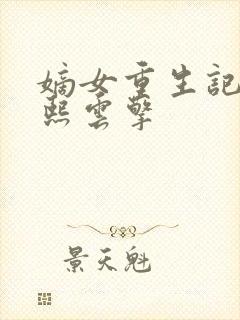 嫡女重生記
熙雲擎
景天魁